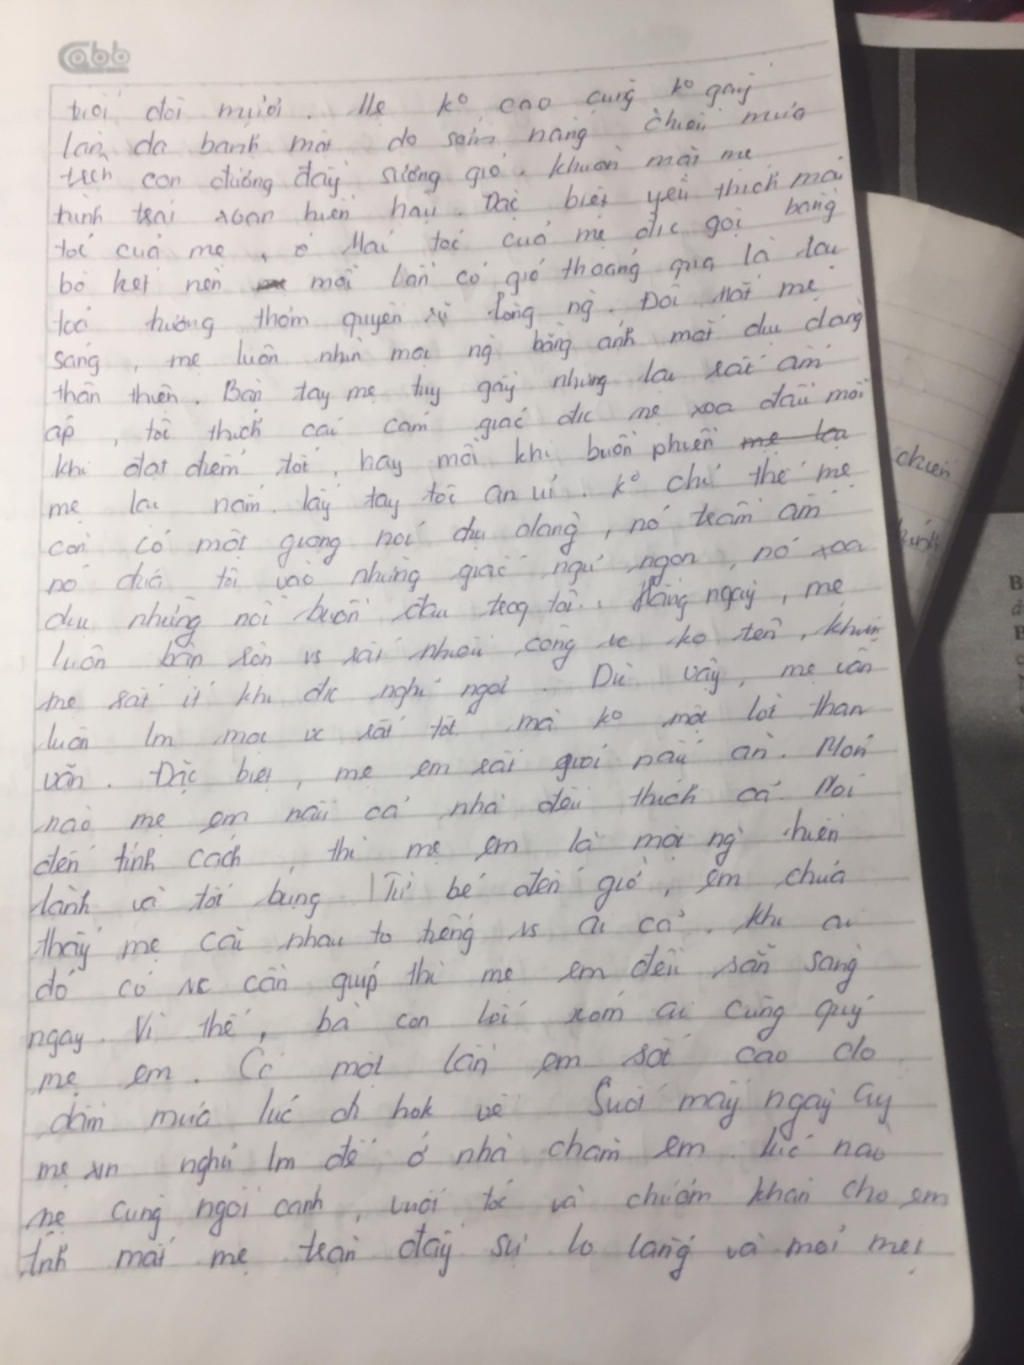 Cabb
tuổi đôi mươi. Mẹ ko cao cũng ko gầy
làn da bánh mật do sớm nắng chiều mưa
trên con đường đầy sương gió. Khuôn mặt mẹ
hình trái xoan hiền hậu. Đặc biệt yêu thích mái
tóc của mẹ, ở Mái tóc của mẹ đc gội bằng
bồ kết nên mỗi lần có gió thoáng qua là lại
toả hương thơm quyến rũ lòng ng. Đôi Mắt mẹ
sáng, mẹ luôn nhìn mọi ng bằng ánh mắt dịu dàng
thân thiện. Bàn tay mẹ tuy gầy nhưng lại rất ấm
áp, tôi thích cái cảm giác đc mẹ xoa đầu mỗi
khi đạt điểm tốt, hay mỗi khi buồn phiền mẹ lại
mẹ lại nắm lấy tay tôi an ủi. ko chỉ thế mẹ
còn có một giọng nói dịu dàng, nó trầm ấm
nó đưa tôi vào những giấc ngủ ngon, nó xoa
dịu những nỗi buồn đau trog tôi. Hàng ngày, mẹ
luôn bận rộn vs rất nhiều công vc ko tên, khiến
mẹ rất ít khi đc nghỉ ngơi. Dù vậy, mẹ vẫn
luôn lm mọi vc rất tốt mà ko một lời than
vãn. Đặc biệt, mẹ em rất giỏi nấu ăn. Món
nào mẹ em nấu cả nhà đều thích cả. Nói
đến tính cách, thì mẹ em là một ng hiền
lành và tốt bụng Từ bé đến giờ, em chưa
thấy mẹ cãi nhau to tiếng vs ai cả. Khi ai
đó có vc cần giúp thì mẹ em đều sẵn sàng
ngay. Vì thế, bà con lối xóm ai cũng quý
mẹ em. Có một lần em sốt cao do
dầm mưa lúc đi hok về Suốt mấy ngày ấy
mẹ xin nghỉ lm để ở nhà chăm em. Lúc nào
mẹ cũng ngồi cạnh, vuốt tóc và chườm khăn cho em
Ánh mắt mẹ tràn đầy sự lo lắng và mỏi mệt
chiến
B
B